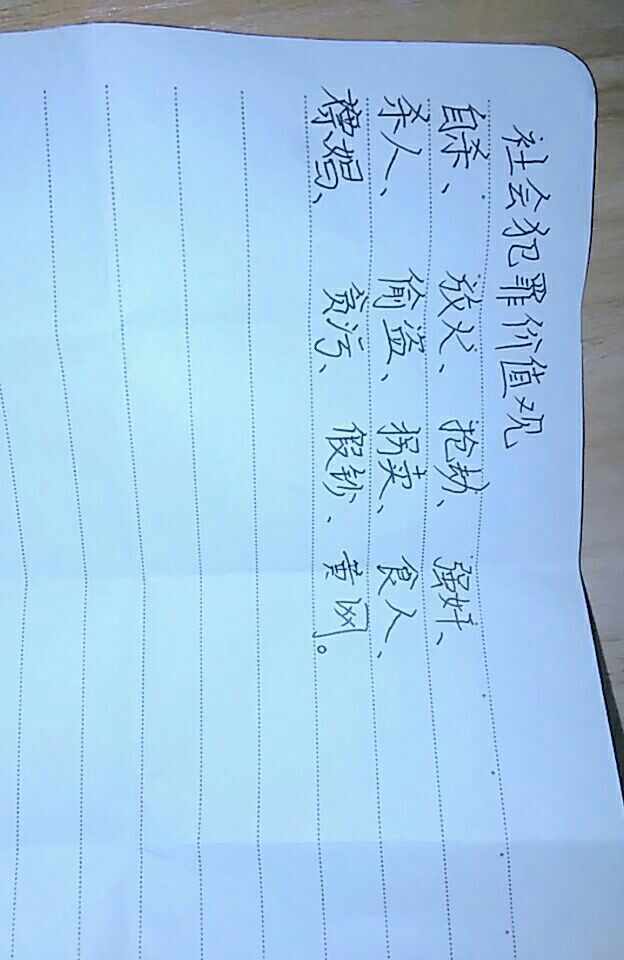 社会犯罪价值观
自杀、放火、抢劫、强奸、
杀人、偷盗、拐卖、食人、
嫖娼、贪污、假钞、黄网。